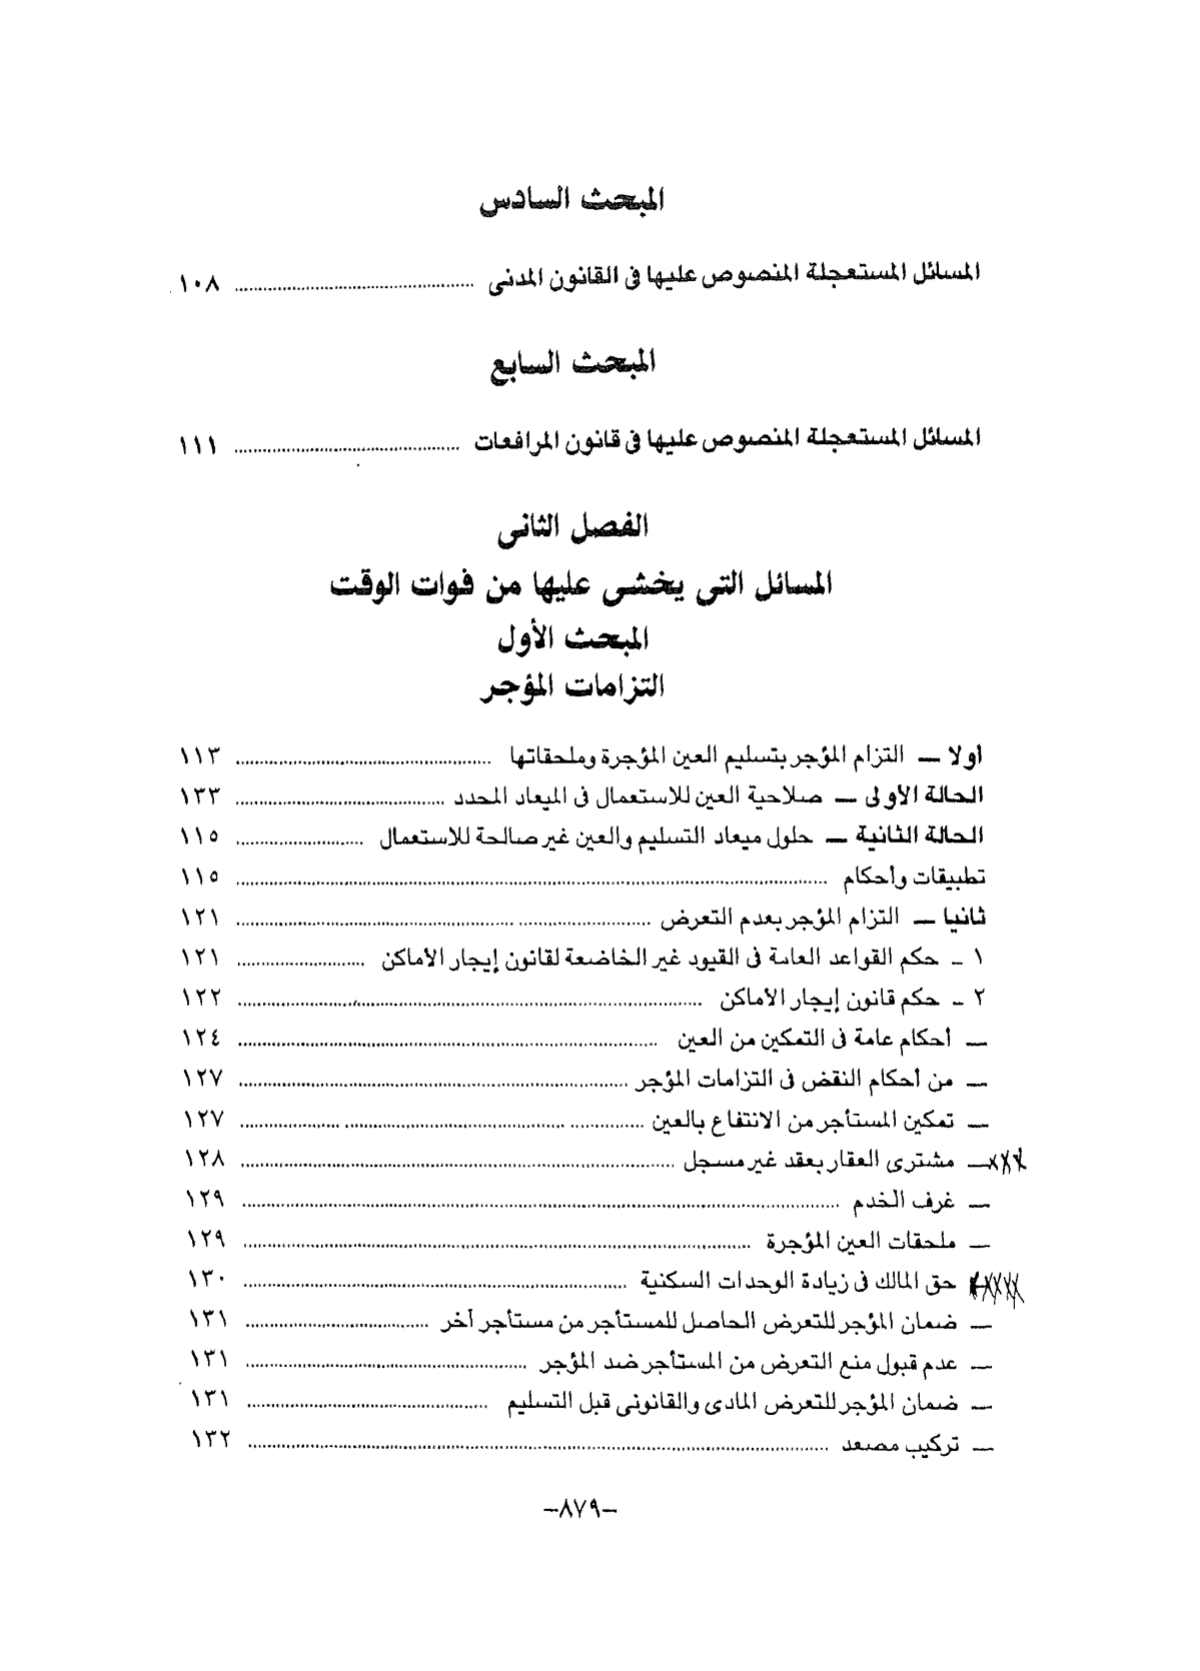 المبحث السادس
المسائل المستعجلة المنصوص عليها فى القانون المدنى ........ ١٠٨
المبحث السابع
المسائل المستعجلة المنصوص عليها فى قانون المرافعات ........ ١١١
الفصل الثانى
المسائل التى يخشى عليها من فوات الوقت
المبحث الأول
التزامات المؤجر
أولا — التزام المؤجر بتسليم العين المؤجرة وملحقاتها ........ ١١٣
الحالة الأولى — صلاحية العين للاستعمال فى الميعاد المحدد ........ ١٣٣
الحالة الثانية — حلول ميعاد التسليم والعين غير صالحة للاستعمال ........ ١١٥
تطبيقات وأحكام ........ ١١٥
ثانيا — التزام المؤجر بعدم التعرض ........ ١٢١
١ - حكم القواعد العامة فى القيود غير الخاضعة لقانون إيجار الأماكن ........ ١٢١
٢ - حكم قانون إيجار الأماكن ........ ١٢٢
— أحكام عامة فى التمكين من العين ........ ١٢٤
— من أحكام النقض فى التزامات المؤجر ........ ١٢٧
— تمكين المستأجر من الانتفاع بالعين ........ ١٢٧
xxx— مشترى العقار بعقد غير مسجل ........ ١٢٨
— غرف الخدم ........ ١٢٩
— ملحقات العين المؤجرة ........ ١٢٩
xxxx حق المالك فى زيادة الوحدات السكنية ........ ١٣٠
— ضمان المؤجر للتعرض الحاصل للمستأجر من مستأجر آخر ........ ١٣١
— عدم قبول منع التعرض من المستأجر ضد المؤجر ........ ١٣١
— ضمان المؤجر للتعرض المادى والقانونى قبل التسليم ........ ١٣١
— تركيب مصعد ........ ١٣٢
–٨٧٩–